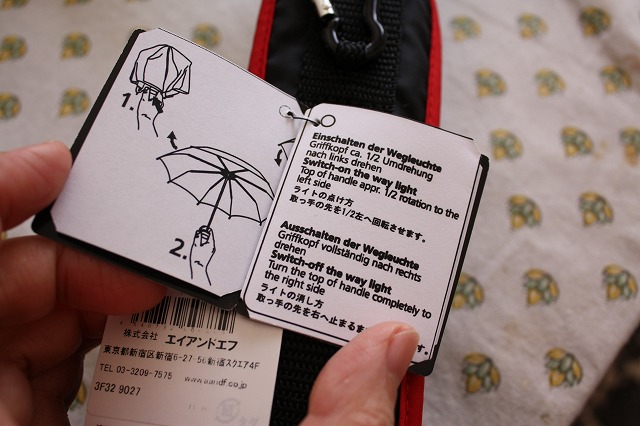 1.
2.
Einschalten der Wegleuchte
Griffkopf ca. 1/2 Umdrehung
nach links drehen
Switch-on the way light
Top of handle appr. 1/2 rotation to the
left side
ライトの点け方
取っ手の先を1/2左へ回転させます。
Ausschalten der Wegleuchte
Griffkopf vollständig nach rechts
drehen
Switch-off the way light
Turn the top of handle completely to
the right side
ライトの消し方
取っ手の先を右へ止まるま す。
株式会社 エイアンドエフ
東京都新宿区新宿6-27-56新宿スクエア4F
TEL 03-3209-7575 www.aandf.co.jp
3F32 9027